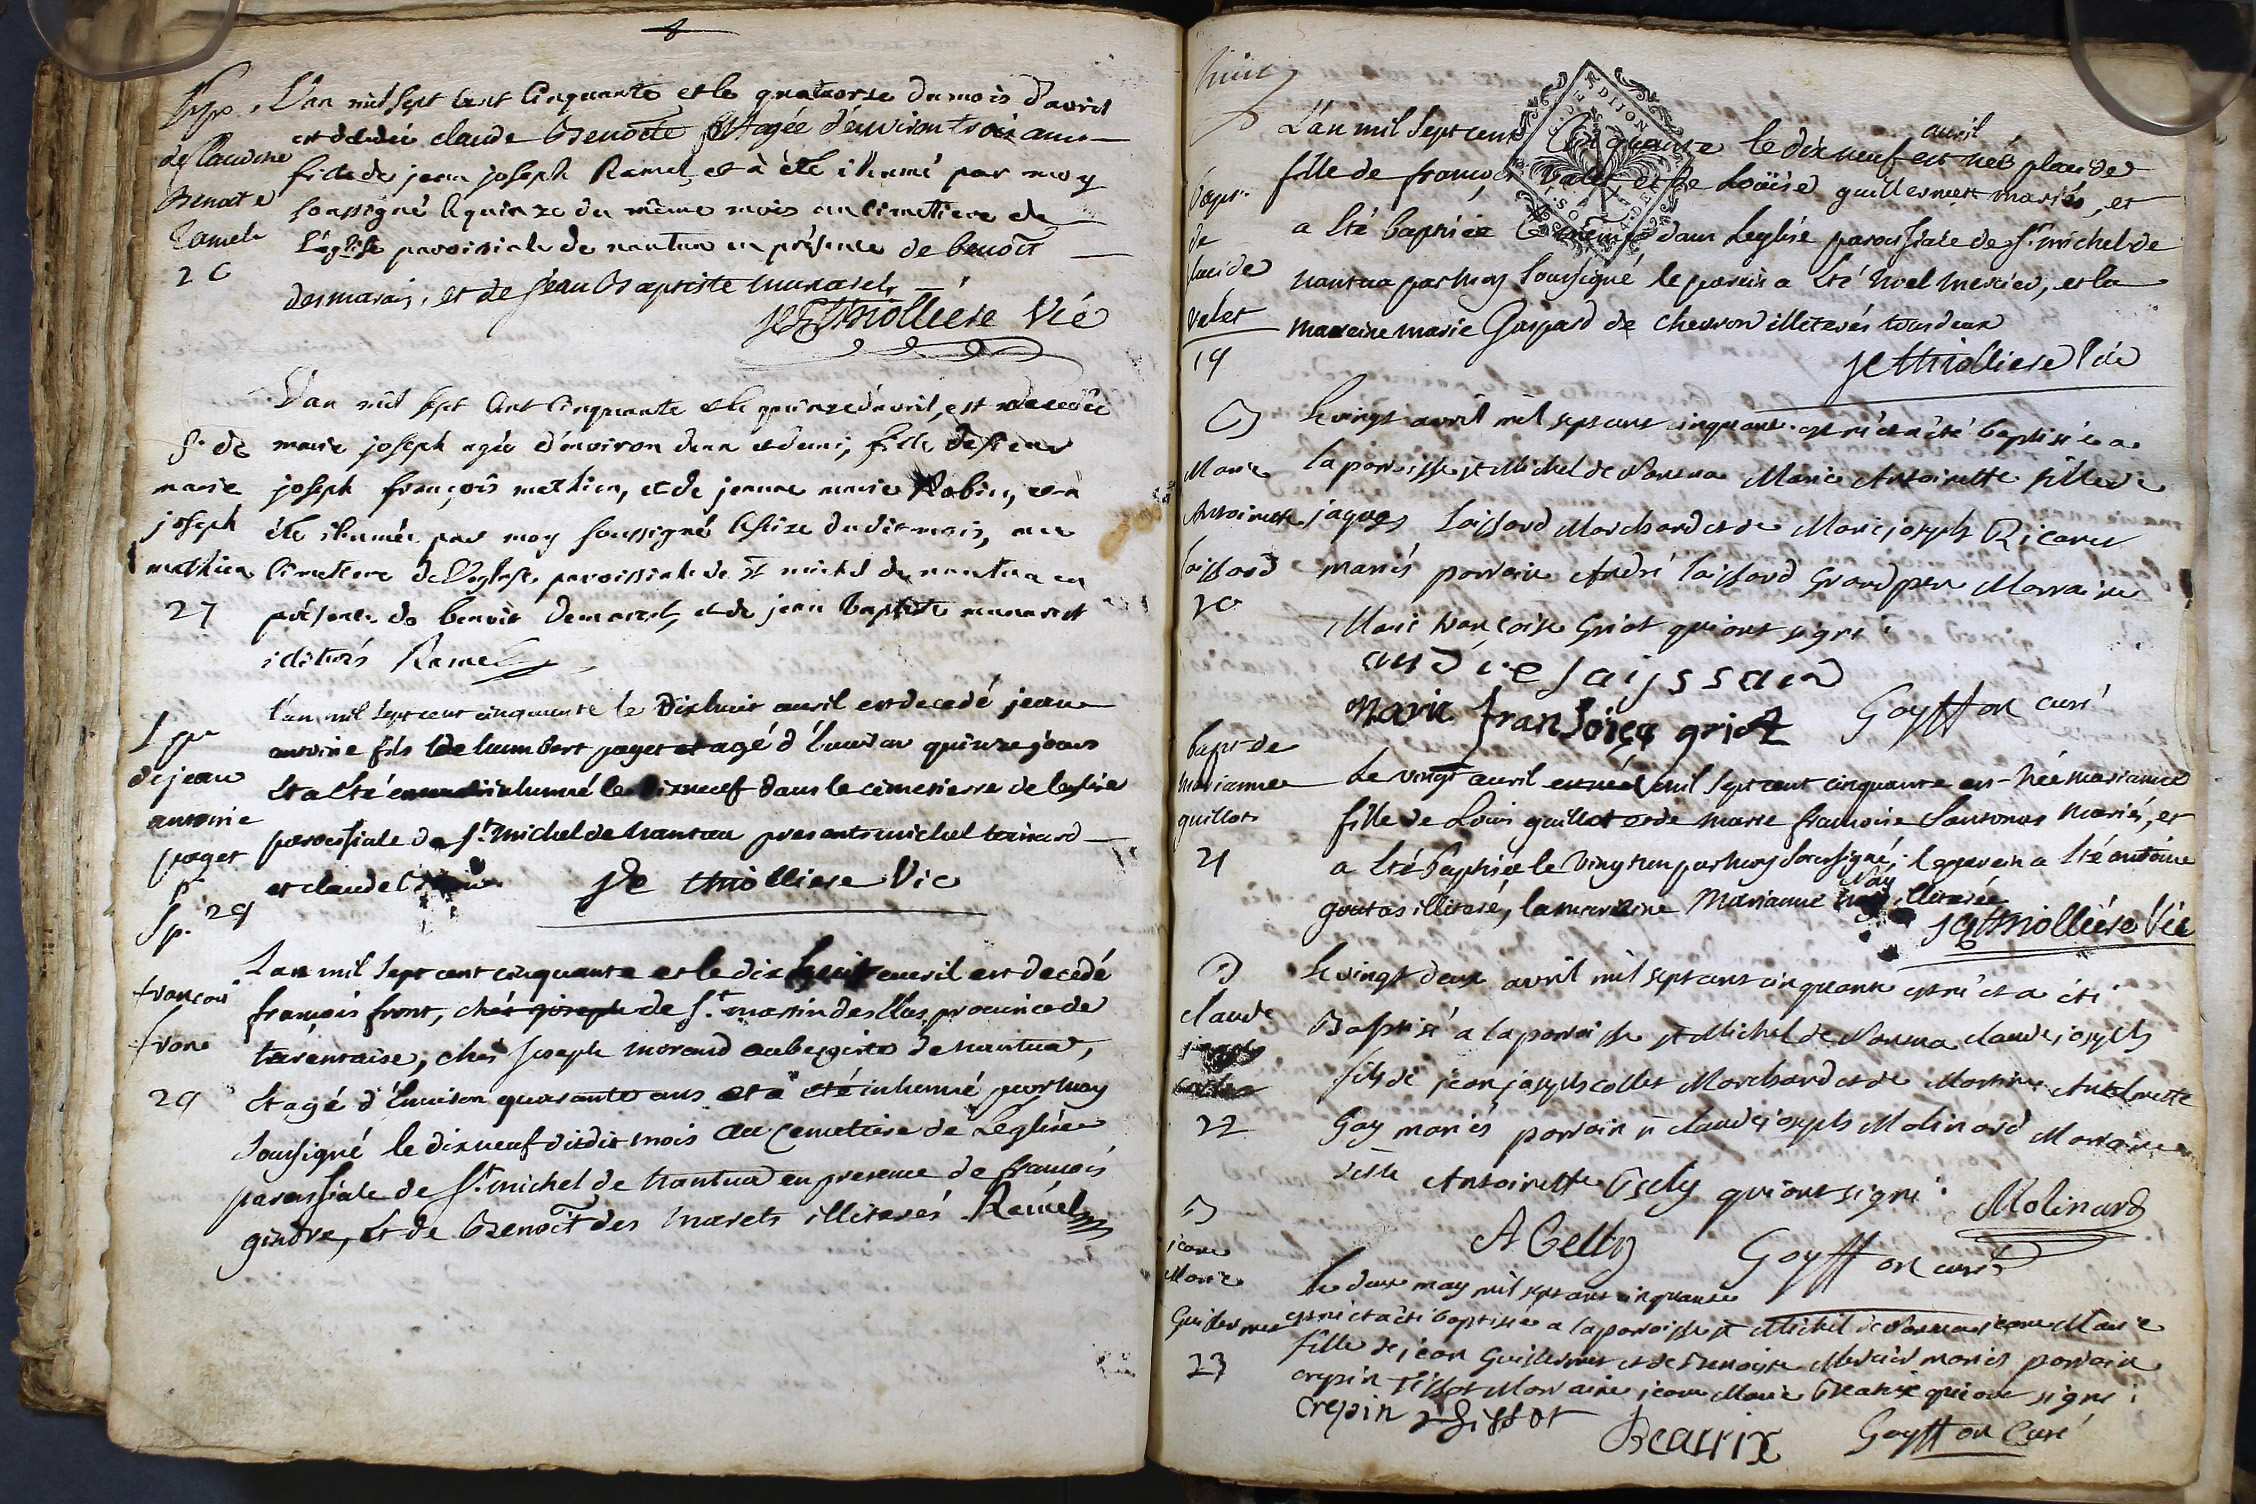 8
Sep.re
de Claudine
Benoite
Ramel
26
L'an mil sept cent Cinquante et le quatorse du mois d'avril
est décédée claude Benoîte agée d'environ trois ans
fille de jean joseph Ramel, et à été ihumé par moy
soussigné le quinze du même mois au cimetiere de
L'église paroissiale de nantua en présence de benoît
desmarais, et de Jean Baptiste munaret
JC Thiolliére Vic
S. de
marie
joseph
mathieu
27
L'an mil sept cent Cinquante et le quinze d'avril, est decedée
marie joseph agée d'environ d'un et demi, fille de sieur
joseph françois mathieu, et de jeanne marie Robin, et a
été ihumée par moy soussigné le seize du dit mois, au
Cimetiere de L'eglise paroissiale de st michel de nantua en
présence de benoit demarest, et de jean baptiste munaret
iliterés Ramel
de jean
antoine
paget
29
L'an mil sept cent cinquante le Dixhuit auril est decedé jean
antoine fils de humbert paget agé d'Enuiron quinze jours
Et a Esté inhumé le Dixneuf dans le cimetierre de leglise
paroissiale de St michel de Nantua presents michel tainard
et claude
JC thiolliere Vic
Sp.
françois
front
29
L'an mil sept cent cinquante et le dix huit auril est decedé
françois front, chés joseph de St. martin des Llas, prouince de
tarentaise, chés Joseph morand aubergiste de nantua,
Et agé d'Enuiron quarante ans et à eté inhumé par moy
soussigné le dixneuf dudit mois au Cemetiere de Leglise
paroissiale de St. michel de Nantua en presence de françois
gindre, et de Benoît des marets illiterés Ramel
huit
bapt.
de
placide
Valet
19
L'an mil sept cent Cinquante le dixneuf auril est née placide
fille de françois Valet et de Loüise guillermet mariés, et
a Eté baptisée le même dans Leglise paroissiale de St. michel de
nantua par moy soussigné le parein a Eté Noel mercier, et la
mareine marie Gaspard de chevron illiterés tous deux
JC thiolliere Vic
B
Marie
Antoinette
laissard
20
le vingt avril mil sept cent cinquante est né et a été baptisée a
la parroisse st Michel de Nantua Marie Antoinette fille de
jaques laissard Marchand et de Marie joseph Ricaret
mariés parrain André laissard Grand pere Marraine
Marie françoise Griot qui ont signé.
andre laijssard
marie franSoiça griot
Goyffon curé
bapt de
marianne
guillot
21
Le vingt auril mil sept cent cinquante est née marianne
fille de Louis guillot et de marie françoise Santonas Mariés, et
a Eté Baptisée le Vingt un par moy soussigné, le parein a Eté antoine
goutas illiteré, la mareine Marianne Nay illiterée
JC thiolliére Vic
B
claude
22
le vingt deux avril mil sept cent cinquante est né et a été
Baptisé a la parroisse st Michel de Nantua claude joseph
fils de jean joseph collet Marchand et de Martine Anthelmette
Gay mariés parrain sr claude joseph Molinard Marraine
delle Antoinette Celly qui ont signé.
A Celly
Molinard
Goyffon curé
B
jeane
Marie
Guillermet
23
le deux may mil sept cent cinquante
est né et a été baptisée a la parroisse st Michel de Nantua jeane Marie
fille de jean Guillermet et de Benoiste Mercier mariés parrain
crepin tissot Marraine jeane Marie Beatrix qui ont signé.
crepin tissot
Beatrix
Goyffon Curé